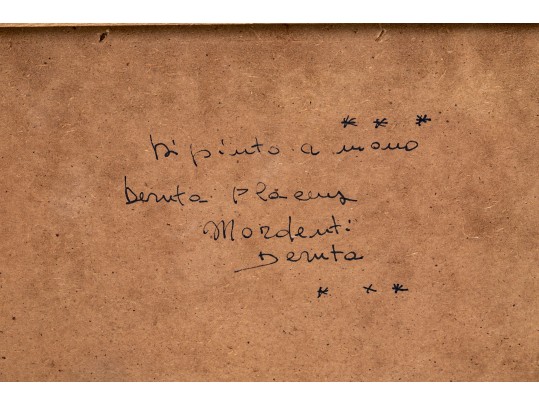 * * *
Dipinto a mano
Deruta Placeuz
Mordenti
Deruta
* * *